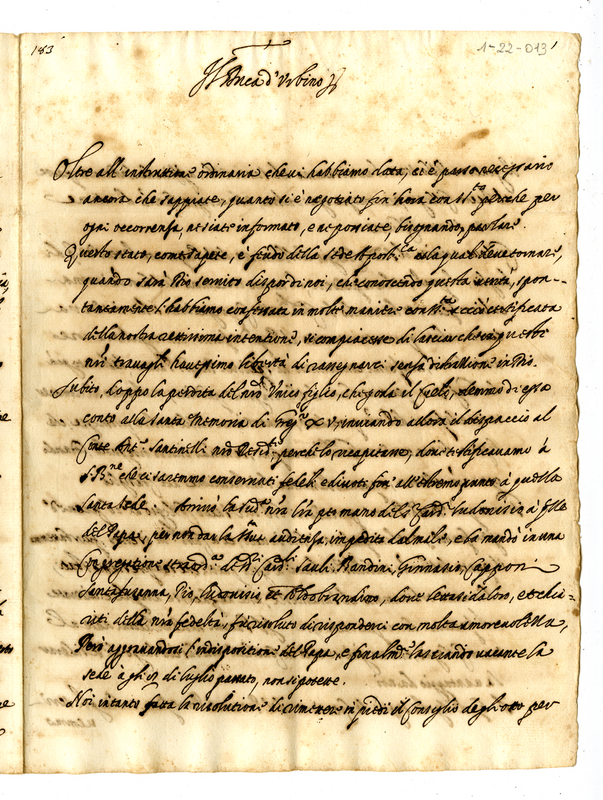 183
1-22-013
Il Duca d'Urbino
Oltre all'instruttione ordinaria che vi habbiamo data, ci è parso necessario
ancora che sappiate, quanto si è negotiato fin'hora con perche per
ogni occorrenza, ne siate informato, e ne possiate, bisognando, parlare.
Questo stato, come sapete, è feudo della Sede Apost.ca alla qual deve tornare,
quando sarà Dio servito dispor di noi, che conoscendo questa verità, spon-
taneamente l'habbiamo confessata in molte maniere con certificata
della nostra intentione, si compiacesse di lasciar che in queste
nri travagli havessimo libertà di rassegnarci senza distrattione in Dio.
Subito, doppo la perdita del nro Unico figlio, che goda il Cielo, demmo di essa
conto alla santa Memoria di Greg.o XV, inviando allora il dispaccio al
Conte Ant.o Santinelli nro Resid.te perche lo ricapitasse, dove testificavamo à
S. B.ne che ci saremmo conservati fedeli e divoti fin'all'estremo punto à quella
Santa Sede. Arrivò la sud.a nra lra per mano del S. Card. Ludovisio à
del Papa, per non dar la sua audienza, impedita dal male, e la mandò in una
Congregatione de SS.ri Card.li Sauli, Bandini, Ginnasio, Capponi
Santa Susanna, Pio, Ludovisio, et Aldobrandino, dove letta da loro, e
della nra fedeltà, fu risoluto di risponderci con molta amorevolezza,
Però aggravandosi l'indispositione del Papa, e finalm.te lasciando vacante la
sede a gli 8 di luglio passato, non si potette.
Noi intanto fatta la risolutione di rimettere in piedi il Consiglio degli otto per